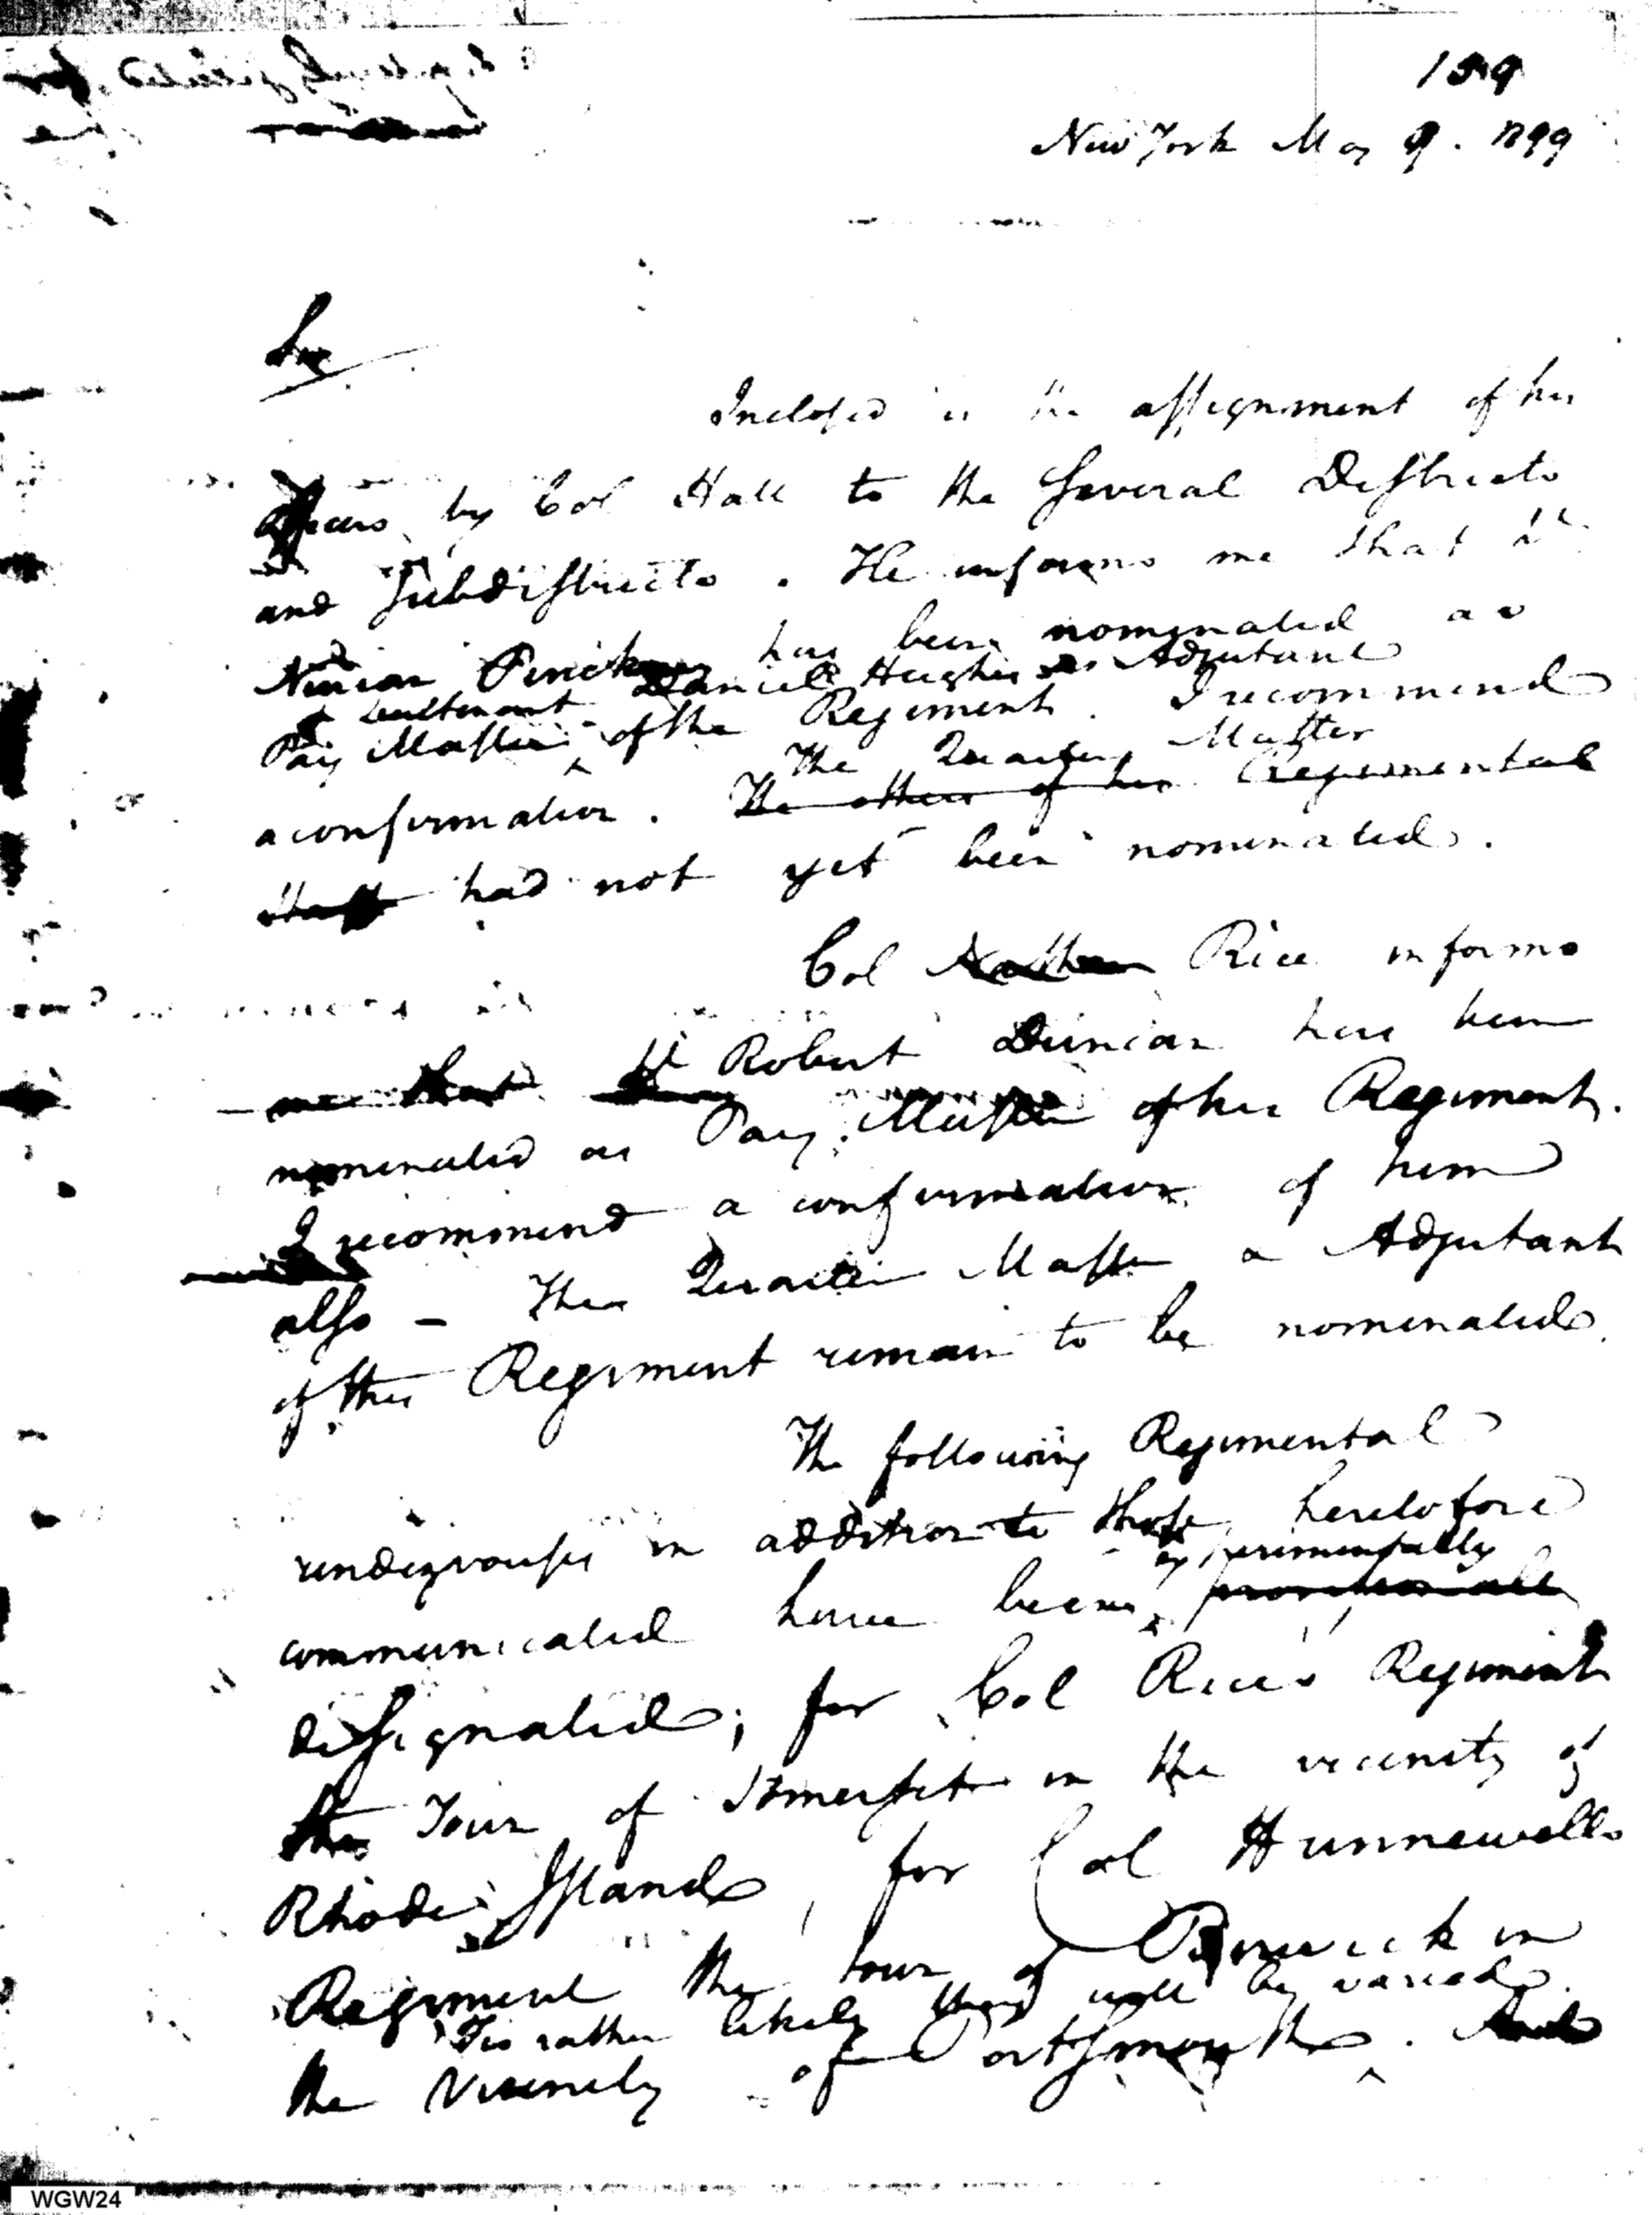 159
New York May 9. 1799
Sir
Inclosed is the assignment of his
officers by Col Hall to the several Districts
and subdistricts. He informs me that Lt
Ninian Pinckney has been nominated as
& Lieutenant Daniel Hughes as Adjutant
Pay Master of the Regiment. I recommend
The Quarter Master
a confirmation. The others of his Regimental
staff had not yet been nominated.
Col Nathan Rice informs
me that Lt Robert Duncan has been
nominated as Pay Master of his Regiment.
I recommend a confirmation of him
also - The Quarter Master & Adjutant
of this Regiment remain to be nominated.
The following Regimental
rendezvouses in addition to those heretofore
experimentally
communicated have been provisionally
designated; for Col Rice's Regiment
the Town of Somerset in the vicinity of
Rhode Island, for Col Hunnewells
Regiment the town of Berwick in
Tis rather likely these will be varied.
the Vicinity of Portsmouth. And
WGW24